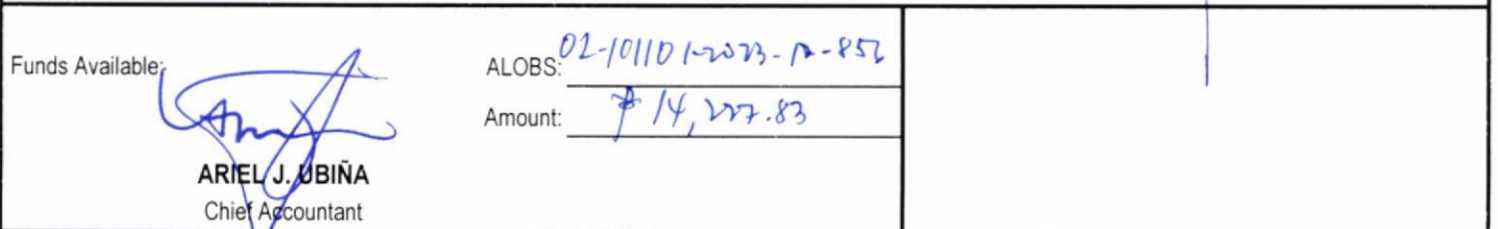 Funds Available:
ALOBS: 02-101101-2023-12-856
Amount: ₱ 14,227.83
ARIEL J. UBIÑA
Chief Accountant